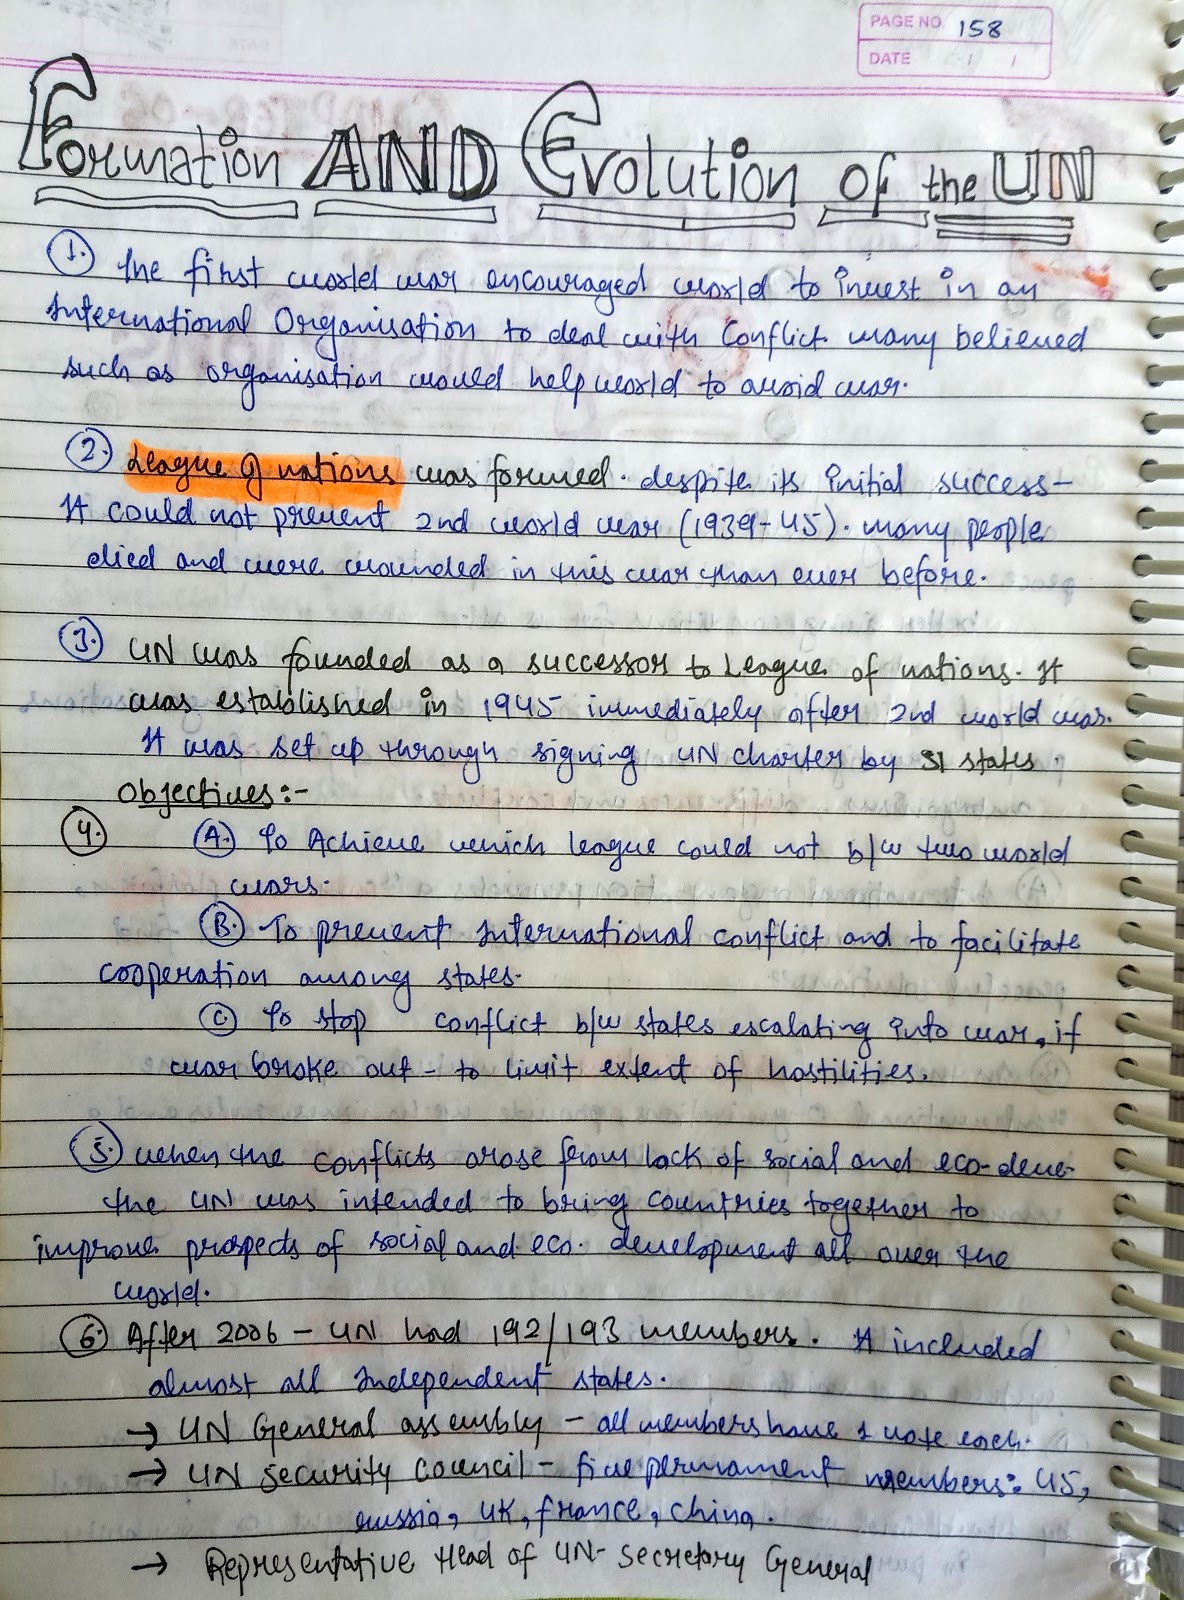 PAGE NO. 158
DATE / /
Formation AND Evolution of the UN
1. The first world war encouraged world to invest in an
International Organisation to deal with Conflict. many believed
such as organisation would help world to avoid war.
2. League of nations was formed. despite its initial success-
It could not prevent 2nd world war (1939-45). many people
died and were wounded in this war than ever before.
3. UN was founded as a successor to League of nations. It
was established in 1945 immediately after 2nd world war.
It was set up through signing UN charter by 51 states.
Objectives:-
4. A. To Achieve which league could not b/w two world
wars.
B. To prevent International conflict and to facilitate
cooperation among states.
C To stop conflict b/w states escalating into war, if
war broke out - to limit extent of hostilities.
5. when the conflicts arose from lack of social and eco-deve-
the UN was intended to bring countries together to
improve prospects of social and eco. development all over the
world.
6. After 2006 - UN had 192/193 members. It included
almost all Independent states.
→ UN General assembly - all members have 1 vote each.
→ UN security council - five permanment members: US,
russia, UK, france, china.
→ Representative Head of UN- Secretary General